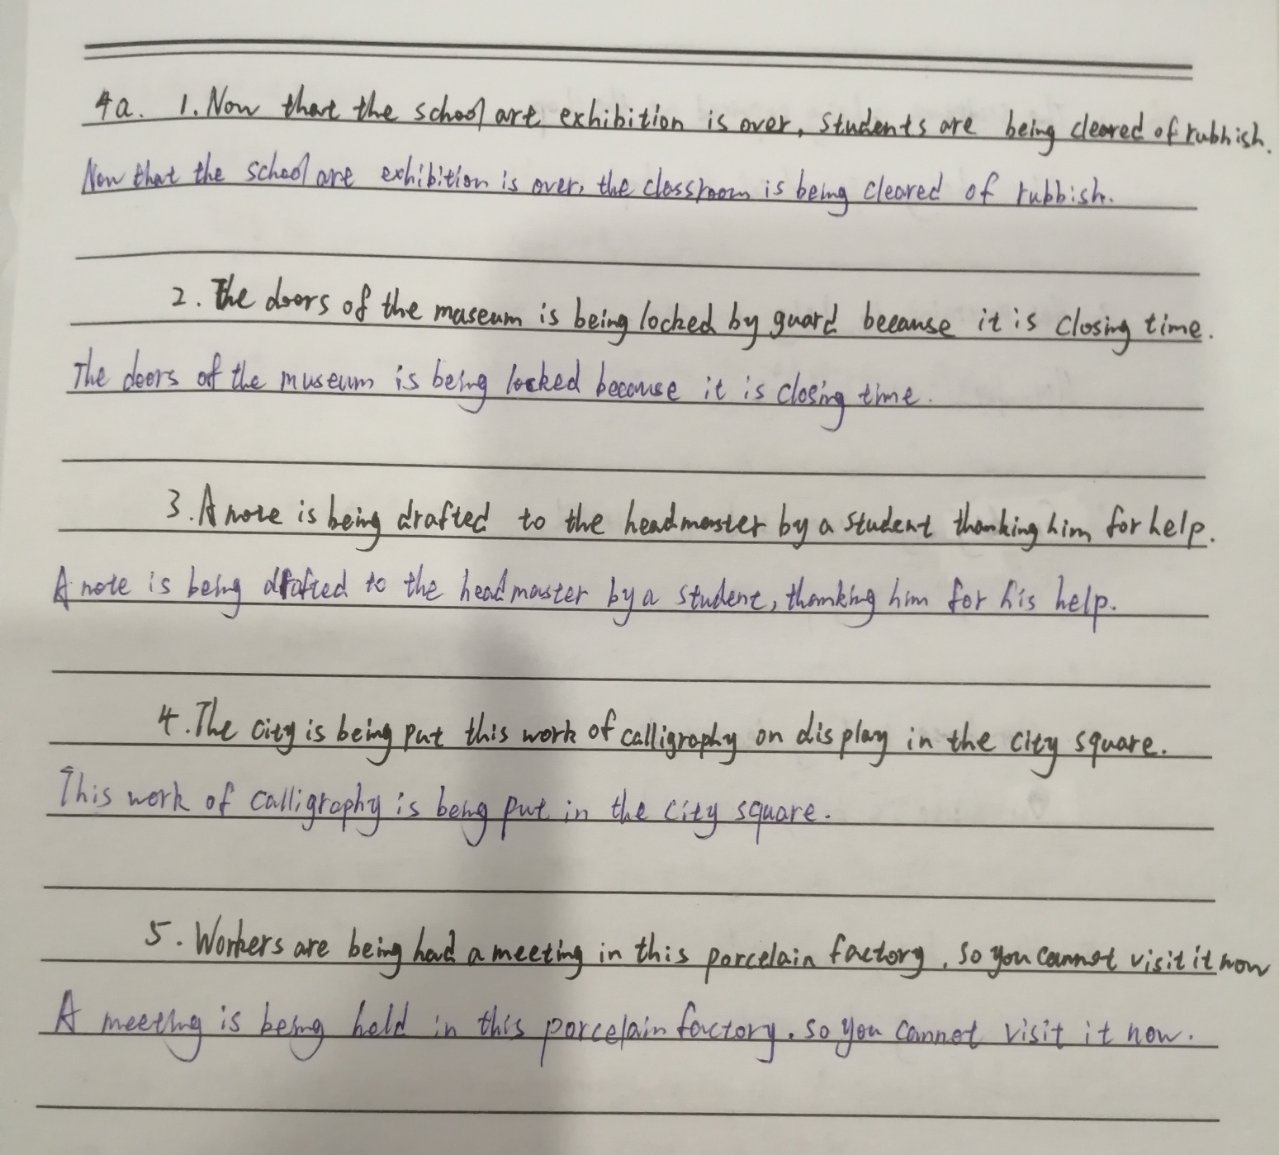 4a. 1. Now that the school art exhibition is over, students are being cleared of rubbish.
Now that the school are exhibition is over, the classroom is being cleared of rubbish.
2. The doors of the maseum is being locked by guard because it is closing time.
The doors of the museum is being locked because it is closing time.
3. A note is being drafted to the headmaster by a student thanking him for help.
A note is being drafted to the headmaster by a student, thanking him for his help.
4. The city is being put this work of calligraphy on display in the city square.
This work of calligraphy is being put in the city square.
5. Workers are being had a meeting in this porcelain factory, so you cannot visit it now
A meeting is being held in this porcelain factory, so you cannot visit it now.